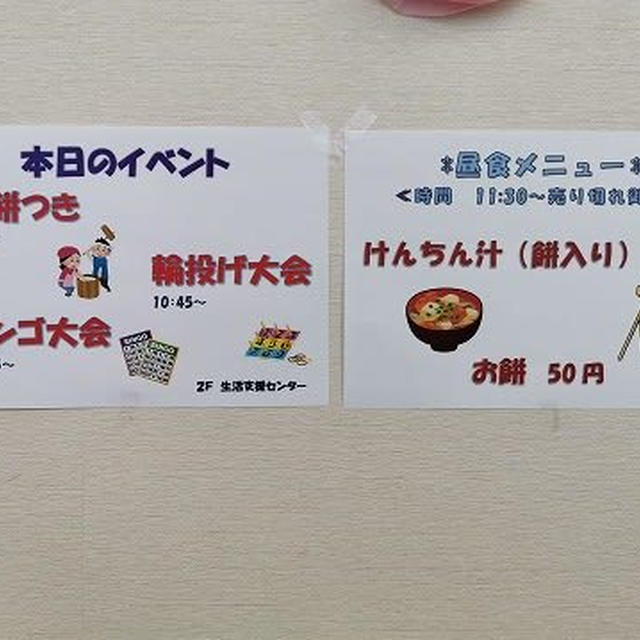 本日のイベント
餅つき
輪投げ大会
10:45～
ンゴ大会
BINGO
BINGO
2F 生活支援センター
昼食メニュー
＜時間 11:30～売り切れ御
けんちん汁（餅入り）
お餅 50円